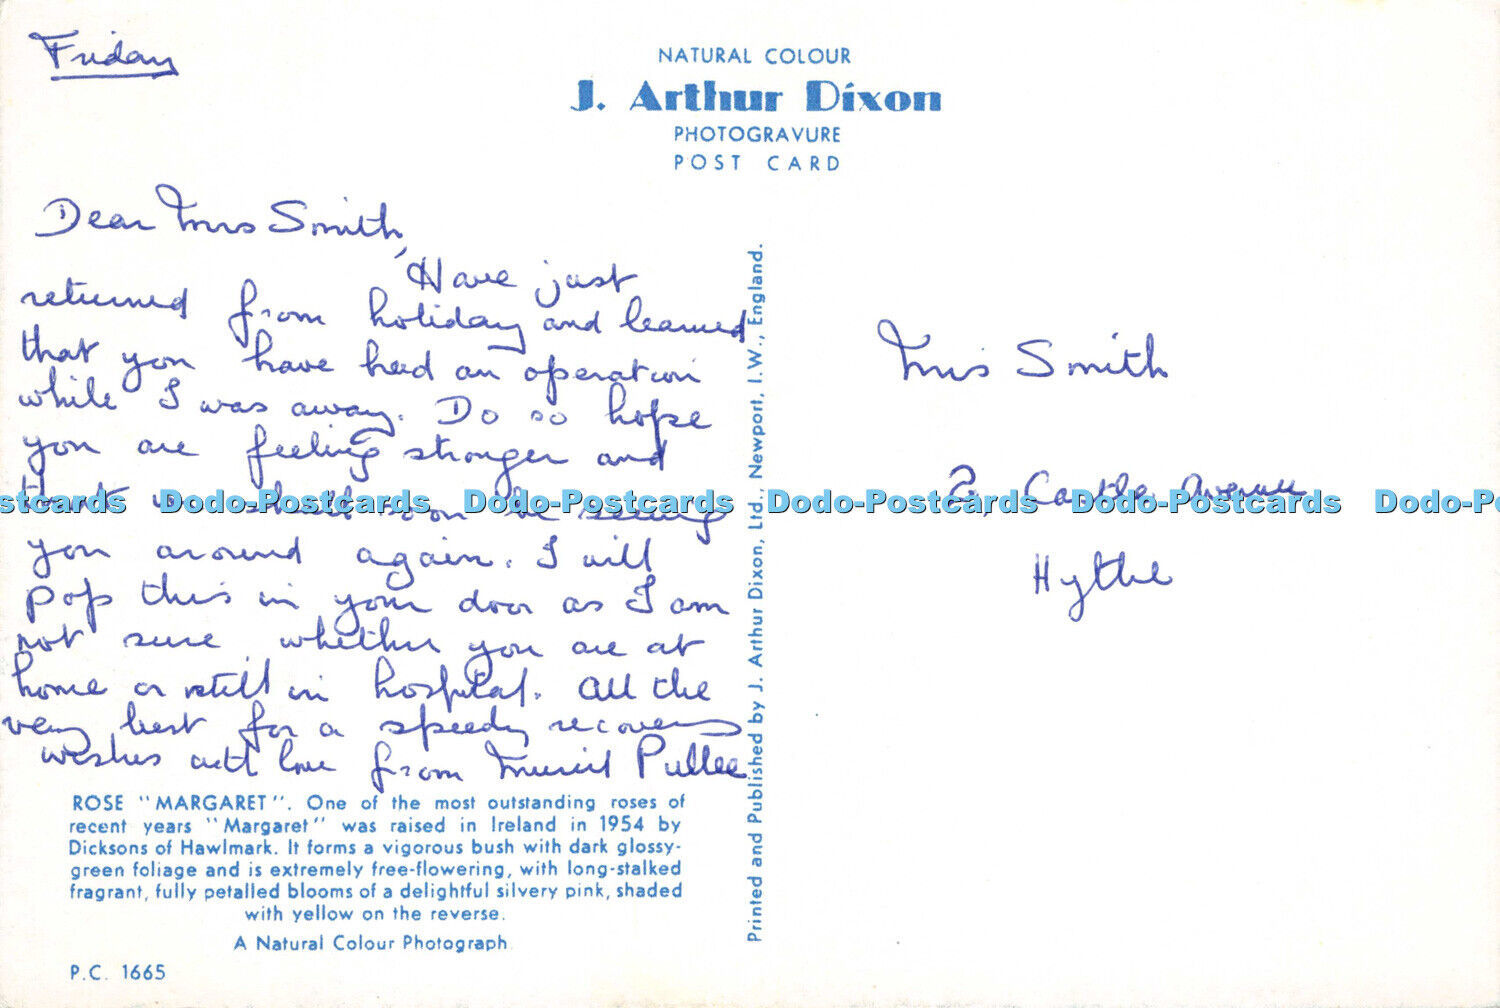 Friday
NATURAL COLOUR
J. Arthur Dixon
PHOTOGRAVURE
POST CARD
Dear Mrs Smith,
Have just
returned from holiday and learned
that you have had an operation
while I was away. Do so hope
you are feeling stronger and
that we shall soon be seeing
you around again. I will
pop this in your door as I am
not sure whether you are at
home or still in hospital. All the
very best for a speedy recovery
wishes with love from Muriel
ROSE "MARGARET". One of the most outstanding roses of
recent years "Margaret" was raised in Ireland in 1954 by
Dicksons of Hawlmark. It forms a vigorous bush with dark glossy-
green foliage and is extremely free-flowering, with long-stalked
fragrant, fully petalled blooms of a delightful silvery pink, shaded
with yellow on the reverse.
A Natural Colour Photograph
P.C. 1665
Printed and Published by J. Arthur Dixon, Ltd., Newport, I.W., England.
Mrs Smith
2, Castle Avenue
Hythe
Dodo-Postcards Dodo-Postcards Dodo-Postcards Dodo-Postcards Dodo-Postcards